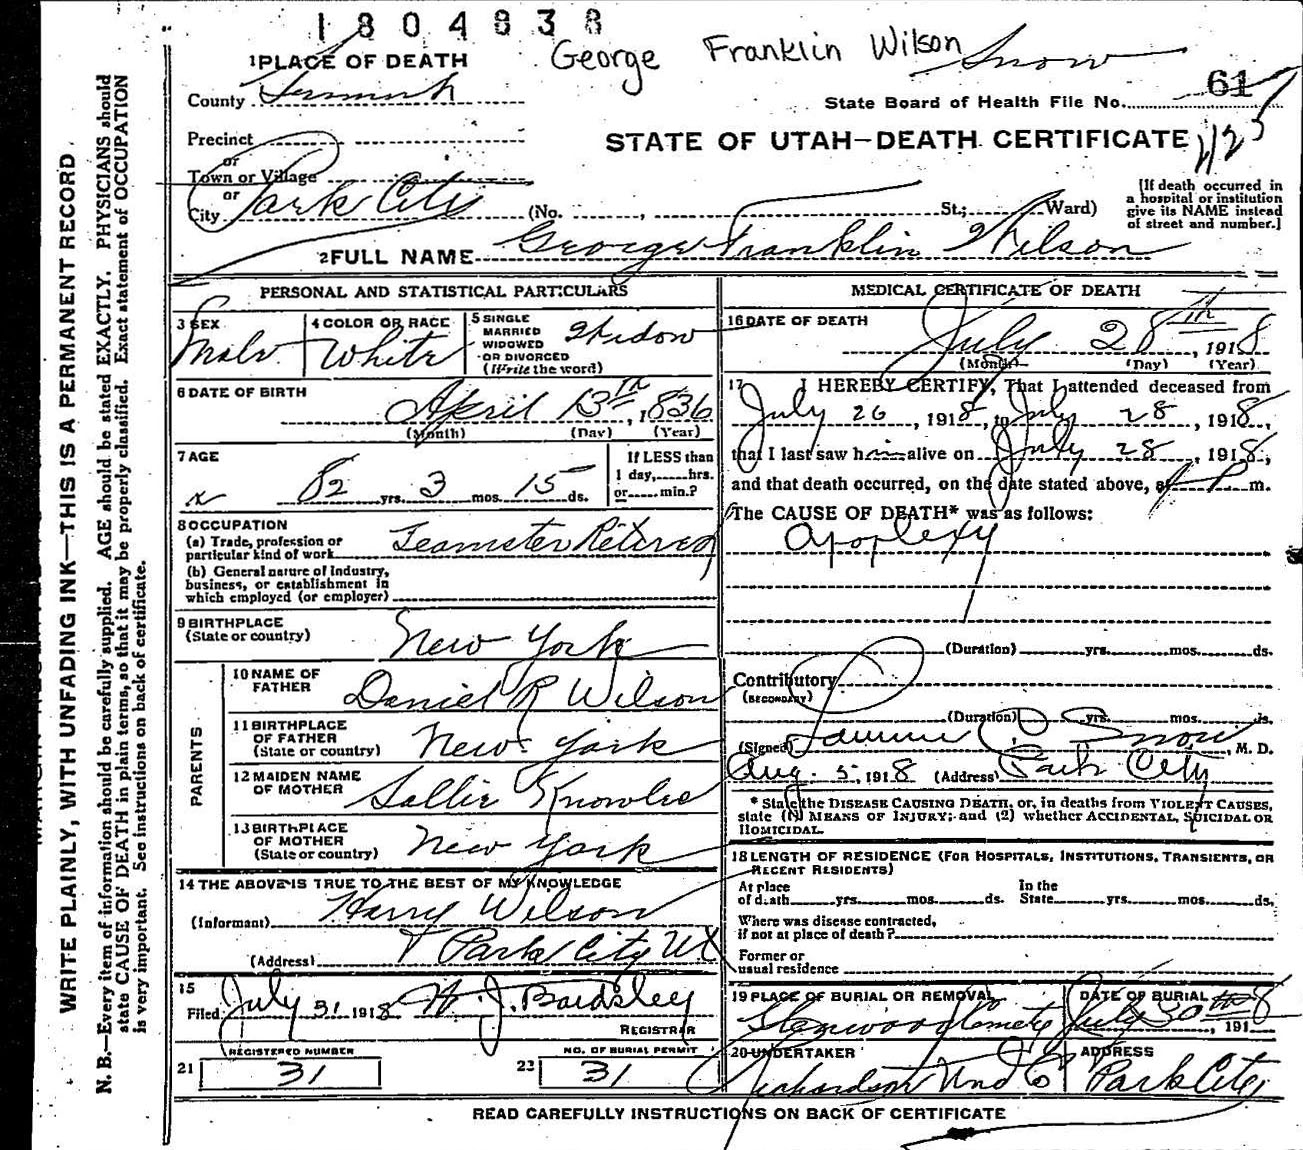 1804838
George Franklin Wilson
Snow
1 PLACE OF DEATH
County Summit
State Board of Health File No. 61
Precinct
or
STATE OF UTAH—DEATH CERTIFICATE
Town or Village
or
City Park City (No. , St.; Ward)
[If death occurred in
a hospital or institution
give its NAME instead
of street and number.]
2 FULL NAME George Franklin Wilson
PERSONAL AND STATISTICAL PARTICULARS
3 SEX
Male
4 COLOR OR RACE
White
5 SINGLE
MARRIED
WIDOWED
OR DIVORCED
(Write the word)
Widow
6 DATE OF BIRTH
April 13th, 1836
(Month) (Day) (Year)
7 AGE
82 yrs. 3 mos. 15 ds.
If LESS than
1 day,......hrs.
or......min.?
8 OCCUPATION
(a) Trade, profession or
particular kind of work Teamster Retired
(b) General nature of Industry,
business, or establishment in
which employed (or employer)
9 BIRTHPLACE
(State or country) New York
PARENTS
10 NAME OF
FATHER Daniel R Wilson
11 BIRTHPLACE
OF FATHER
(State or country) New York
12 MAIDEN NAME
OF MOTHER Sallie Knowles
13 BIRTHPLACE
OF MOTHER
(State or country) New York
14 THE ABOVE IS TRUE TO THE BEST OF MY KNOWLEDGE
(Informant) Harry Wilson
(Address) Park City Ut
15
Filed July 31 1918 W. J. Bardsley
REGISTRAR
21 REGISTERED NUMBER
31
22 NO. OF BURIAL PERMIT
31
MEDICAL CERTIFICATE OF DEATH
16 DATE OF DEATH
July 28th, 1918
(Month) (Day) (Year)
17 I HEREBY CERTIFY, That I attended deceased from
July 26, 1918, to July 28, 1918,
that I last saw him alive on July 28, 1918,
and that death occurred, on the date stated above, at P m.
The CAUSE OF DEATH* was as follows:
Apoplexy
(Duration) yrs. mos. ds.
Contributory
(SECONDARY)
(Duration) yrs. mos. ds.
(Signed) Snow, M. D.
Aug. 5, 1918 (Address) Park City
* State the DISEASE CAUSING DEATH, or, in deaths from VIOLENT CAUSES,
state (1) MEANS OF INJURY; and (2) whether ACCIDENTAL, SUICIDAL OR
HOMICIDAL.
18 LENGTH OF RESIDENCE (FOR HOSPITALS, INSTITUTIONS, TRANSIENTS, OR
RECENT RESIDENTS)
At place
of death yrs. mos. ds.
In the
State yrs. mos. ds.
Where was disease contracted,
if not at place of death?
Former or
usual residence
19 PLACE OF BURIAL OR REMOVAL
Glenwood Cemetery
DATE OF BURIAL
July 30th, 1918
20 UNDERTAKER
Richardson Und Co
ADDRESS
Park City
READ CAREFULLY INSTRUCTIONS ON BACK OF CERTIFICATE
WRITE PLAINLY, WITH UNFADING INK—THIS IS A PERMANENT RECORD
N. B.—Every item of information should be carefully supplied. AGE should be stated EXACTLY. PHYSICIANS should
state CAUSE OF DEATH in plain terms, so that it may be properly classified. Exact statement of OCCUPATION
is very important. See instructions on back of certificate.